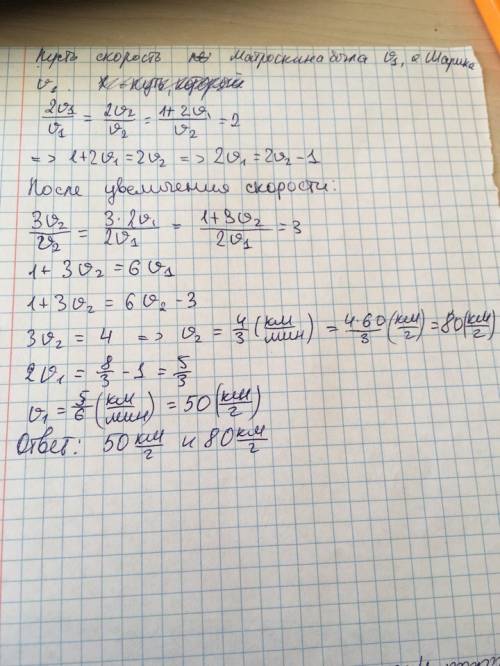 Пусть скорость Матроскина была v₁, а Шарика
v₂. x – путь, который
2v₁/v₁ = 2v₂/v₂ = (1+2v₁)/v₂ = 2
=> 1+2v₁ = 2v₂ => 2v₁ = 2v₂ - 1
После увеличения скорости:
3v₂/v₂ = 3·2v₁/2v₁ = (1+3v₂)/2v₁ = 3
1 + 3v₂ = 6v₁
1 + 3v₂ = 6v₂ - 3
3v₂ = 4 => v₂ = 4/3 (км/мин) = 4·60/3 (км/г) = 80 (км/г)
2v₁ = 8/3 - 1 = 5/3
v₁ = 5/6 (км/мин) = 50 (км/г)
Ответ: 50 км/г и 80 км/г